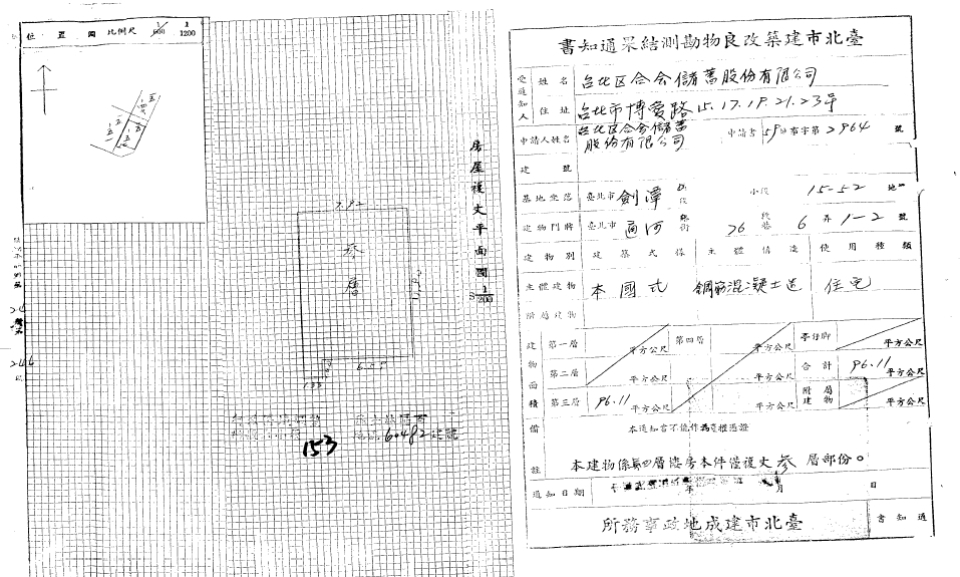 位置圖 比例尺 1/600 1/1200
房屋複丈平面圖 S 1/200
7.92
參層
6.55
1.33
153
60482
246
臺北市建築改良物勘測結果通知書
受通知人 姓名 台北区合会儲蓄股份有限公司
住址 台北市博愛路15.17.19.21.23号
申請人姓名 台北区合会儲蓄股份有限公司 申請書 59 字第 2964 號
建號
基地坐落 臺北市 劍潭 段 小段 15-52 地號
建物門牌 臺北市 通河 街 段巷 26 6 弄 1-2 號
建物別 建築式樣 主體構造 使用種類
主體建物 本國式 鋼筋混凝土造 住宅
附屬建物
建物面積 第一層 平方公尺 第四層 平方公尺 平方公尺
第二層 平方公尺 平方公尺 合計 96.11 平方公尺
第三層 96.11 平方公尺 平方公尺 附屬建物 平方公尺
備註 本通知書不能作為產權憑證
本建物係第四層樓房本件僅複丈參層部份。
通知日期 年 月 日
臺北市建成地政事務所
通知書